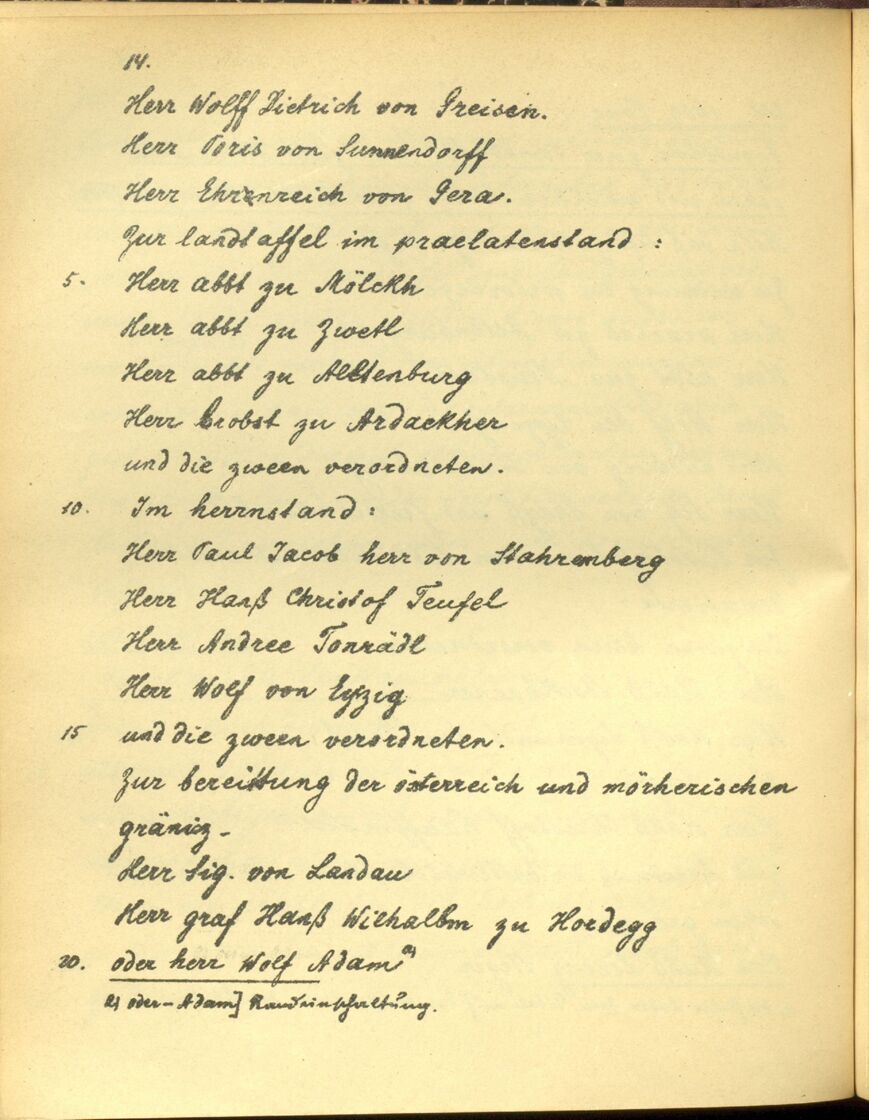 14.
Herr Wolff Dietrich von Greisen.
Herr Poris von Sunnendorff
Herr Ehrenreich von Gera.
Zur landtaffel im praelatenstand :
5. Herr abbt zu Mölckh
Herr abbt zu Zwetl
Herr abbt zu Alltenburg
Herr brobst zu Ardackher
und die zween verordneten.
10. Im herrnstand :
Herr Paul Jacob herr von Stahremberg
Herr Hanß Christof Teufel
Herr Andree Tonrädl
Herr Wolf von Eyzig
15 und die zween verordneten.
Zur bereittung der österreich und mörherischen
gräniz-
Herr Sig. von Landau
Herr graf Hanß Wilhalbm zu Hordegg
20. oder herr Wolf Adam a)
a) oder-Adam] Randeinschaltung.